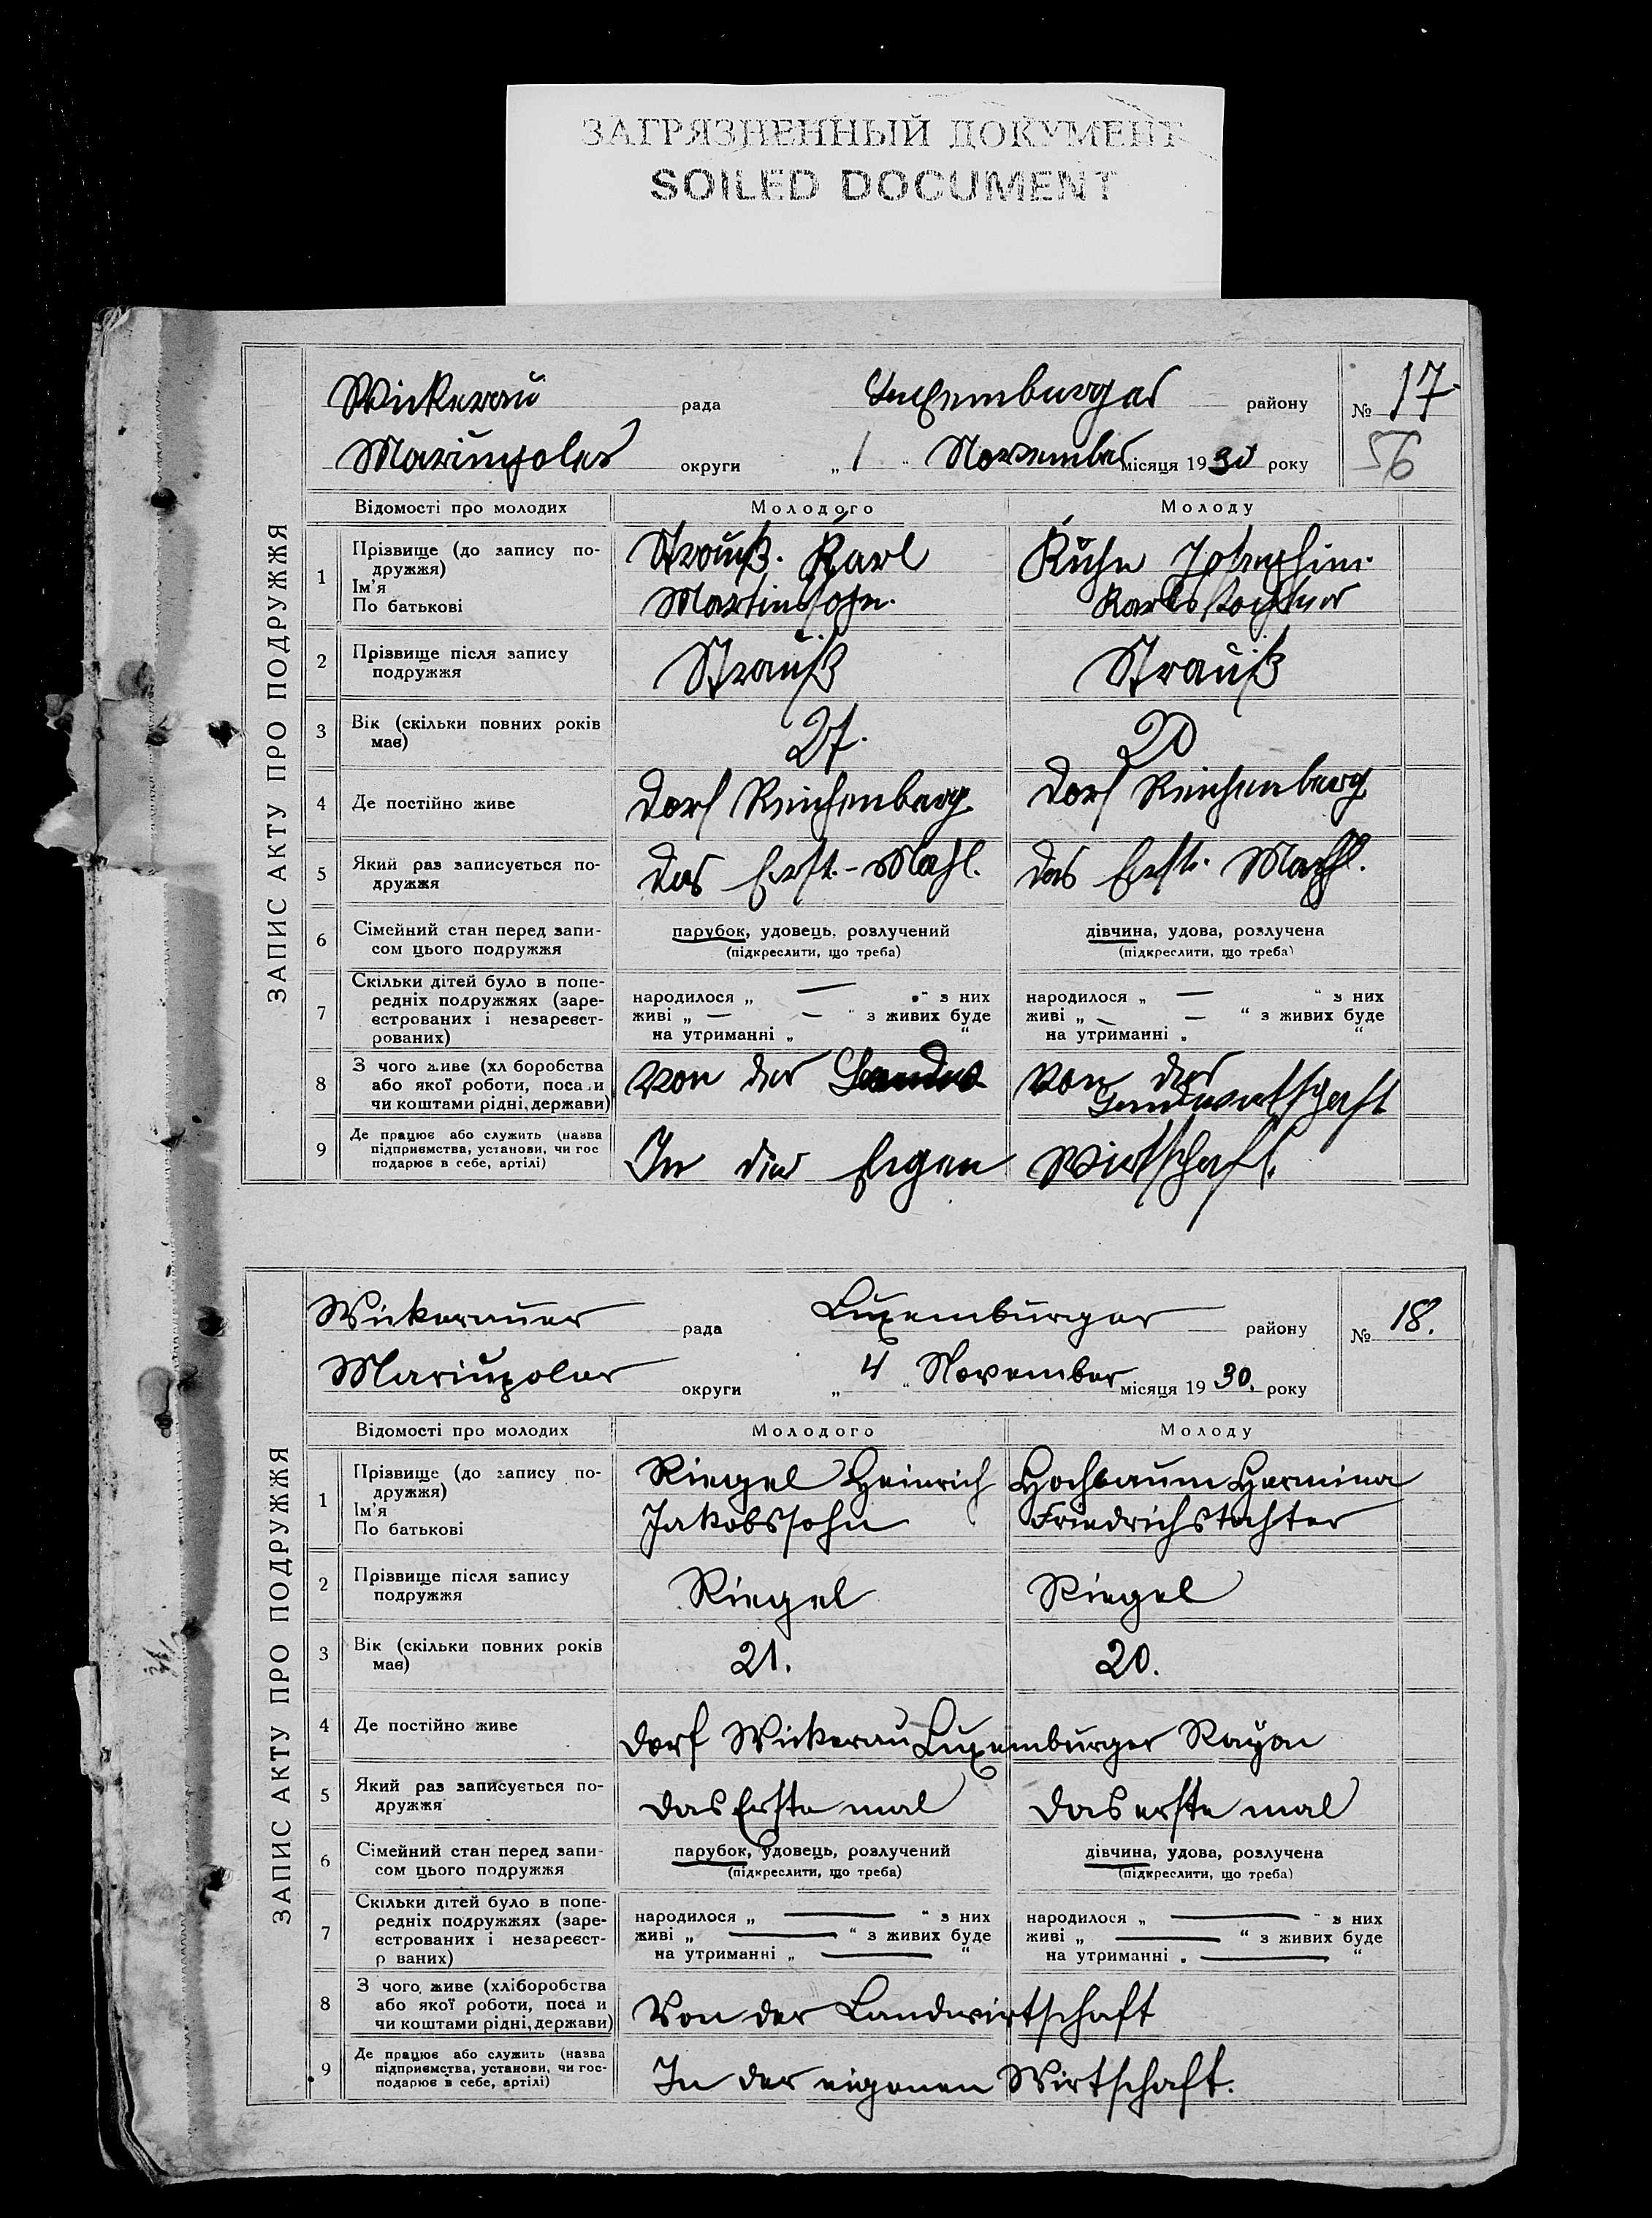 ЗАГРЯЗНЕННЫЙ ДОКУМЕНТ
SOILED DOCUMENT
ЗАПИС АКТУ ПРО ПОДРУЖЖЯ
Wickerau рада Luxemburger району № 17
Mariupoler округи „ 1 “ November місяця 1930 року 56
Відомості про молодих Молодого Молоду
1 Прізвище (до запису по-
дружжя)
Ім'я
По батькові
Strauß. Karl
Martinssohn.
Kühn Josephine
Karlstochter
2 Прізвище після запису
подружжя
Strauß Strauß
3 Вік (скільки повних років
має)
27. 20
4 Де постійно живе Dorf Reichenberg. Dorf Reichenberg
5 Який раз записується по-
дружжя
das Erst.-Mahl. das Erste Mahl.
6 Сімейний стан перед запи-
сом цього подружжя
парубок, удовець, розлучений
(підкреслити, що треба)
дівчина, удова, розлучена
(підкреслити, що треба)
7 Скільки дітей було в попе-
редніх подружжях (заре-
єстрованих і незареєст-
рованих)
народилося „ — “ з них
живі „ — — “ з живих буде
на утриманні „ “
народилося „ — “ з них
живі „ — — “ з живих буде
на утриманні „ “
8 З чого живе (хл боробства
або якої роботи, поса и
чи коштами рідні, держави)
Von der
Von der
Landwirtschaft
9 Де працює або служить (назва
підприємства, установи, чи гос
подарює в себе, артілі)
In der Eigen Wirtschaft.
ЗАПИС АКТУ ПРО ПОДРУЖЖЯ
Wickerauer рада Luxemburger району № 18.
Mariupoler округи „ 4 “ November місяця 1930. року
Відомості про молодих Молодого Молоду
1 Прізвище (до запису по-
дружжя)
Ім'я
По батькові
Riegel Heinrich
Jakobssohn
Hochbaum Hermina
Friedrichstochter
2 Прізвище після запису
подружжя
Riegel Riegel
3 Вік (скільки повних років
має)
21. 20.
4 Де постійно живе Dorf Wickerau Luxemburger Rayon
5 Який раз записується по-
дружжя
das Erste mal das erste mal
6 Сімейний стан перед запи-
сом цього подружжя
парубок, удовець, розлучений
(підкреслити, що треба)
дівчина, удова, розлучена
(підкреслити, що треба)
7 Скільки дітей було в попе-
редніх подружжях (заре-
єстрованих і незареєст-
р ваних)
народилося „ — “ з них
живі „ — “ з живих буде
на утриманні „ — “
народилося „ — “ з них
живі „ — “ з живих буде
на утриманні „ — “
8 З чого живе (хліборобства
або якої роботи, поса и
чи коштами рідні, держави)
Von der Landwirtschaft
9 Де працює або служить (назва
підприємства, установи, чи гос-
подарює в себе, артілі)
In der eigenen Wirtschaft.